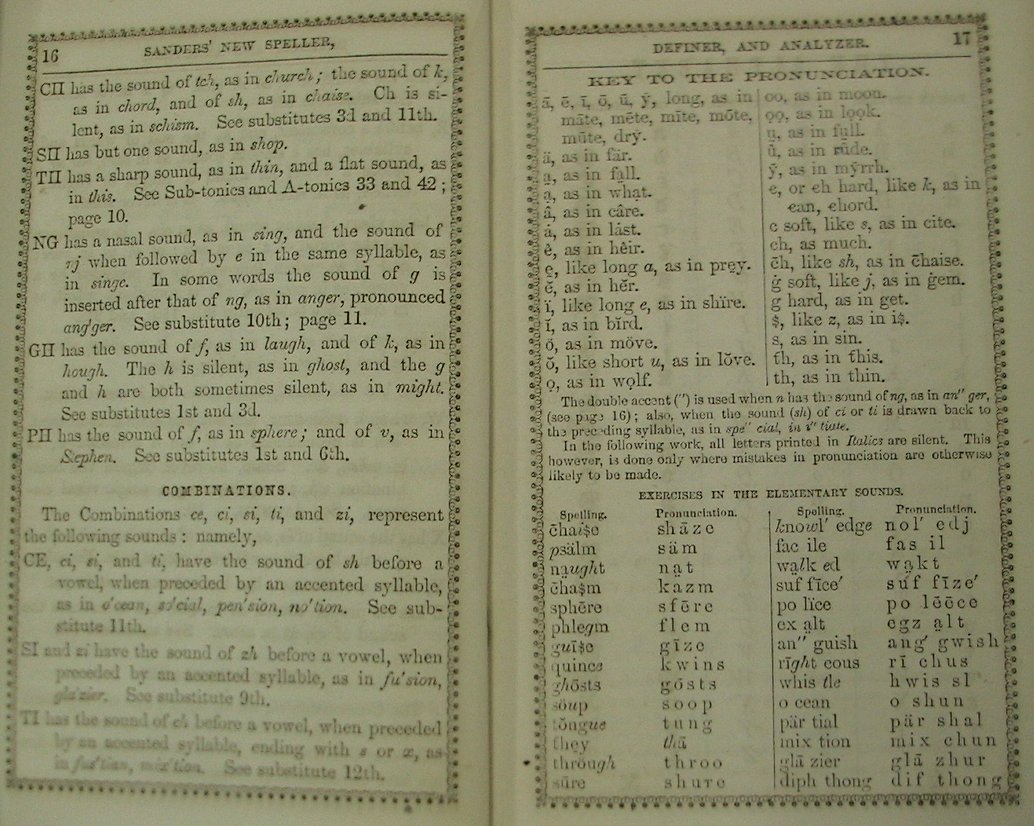 16
SANDERS' NEW SPELLER,
CH has the sound of tch, as in church; the sound of k,
as in chord, and of sh, as in chaise. Ch is si-
lent, as in schism. See substitutes 3d and 11th.
SH has but one sound, as in shop.
TH has a sharp sound, as in thin, and a flat sound, as
in this. See Sub-tonics and A-tonics 33 and 42;
page 10.
NG has a nasal sound, as in sing, and the sound of
nj when followed by e in the same syllable, as
in singe. In some words the sound of g is
inserted after that of ng, as in anger, pronounced
ang'ger. See substitute 10th; page 11.
GH has the sound of f, as in laugh, and of k, as in
hough. The h is silent, as in ghost, and the g
and h are both sometimes silent, as in might.
See substitutes 1st and 3d.
PH has the sound of f, as in sphere; and of v, as in
Stephen. See substitutes 1st and 6th.
COMBINATIONS.
The Combinations ce, ci, si, ti, and zi, represent
the following sounds: namely,
CE, ci, si, and ti, have the sound of sh before a
vowel, when preceded by an accented syllable,
as in o'cean, so'cial, pen'sion, no'tion. See sub-
stitute 11th.
SI and zi have the sound of zh before a vowel, when
preceded by an accented syllable, as in fu'sion,
gla'zier. See substitute 9th.
TI has the sound of ch before a vowel, when preceded
by an accented syllable, ending with s or x, as
in fus'tian, mix'tion. See substitute 12th.
DEFINER, AND ANALYZER.
17
KEY TO THE PRONUNCIATION.
ā, ē, ī, ō, ū, ȳ, long, as in
māte, mēte, mīte, mōte,
mūte, dry.
ä, as in fär.
a̤, as in fa̤ll.
ạ, as in whạt.
â, as in câre.
ȧ, as in lȧst.
ê, as in hêir.
e̱, like long a, as in pre̱y.
ẽ, as in hẽr.
ï, like long e, as in shïre.
ĩ, as in bĩrd.
ö, as in möve.
ȯ, like short u, as in lȯve.
ọ, as in wọlf.
oo, as in moon.
o͝o, as in lo͝ok.
ụ, as in fụll.
ṳ, as in rṳde.
ỹ, as in mỹrrh.
ꞓ, or ꞓh hard, like k, as in
ꞓan, ꞓhord.
c soft, like s, as in cite.
ch, as much.
çh, like sh, as in çhaise.
ġ soft, like j, as in ġem.
g hard, as in get.
ş, like z, as in iş.
s, as in sin.
th, as in this.
th, as in thin.
The double accent (") is used when n has the sound of ng, as in an" ger,
(see page 16); also, when the sound (sh) of ci or ti is drawn back to
the preceding syllable, as in spe" cial, in i" tiate.
In the following work, all letters printed in Italics are silent. This
however, is done only where mistakes in pronunciation are otherwise
likely to be made.
EXERCISES IN THE ELEMENTARY SOUNDS.
Spelling. Pronunciation.
çhaişe shāze
psälm säm
na̤ught na̤t
ꞓhaşm kazm
sphēre sfēre
phlegm flem
guīşe gīze
quince kwins
ghōsts gōsts
soup soop
tȯngue tung
they thā
through throo
sūre shure
Spelling. Pronunciation.
knowl' edge nol' edj
fac ile fas il
wa̤lk ed wa̤kt
suf fīce' suf fīze'
po lïce po lēēce
ex a̤lt egz a̤lt
an" guish ang' gwish
rīght eous rī chus
whis tle hwis sl
o cean o shun
pär tial pär shal
mix tion mix chun
glā zier glā zhur
diph thong dif thong